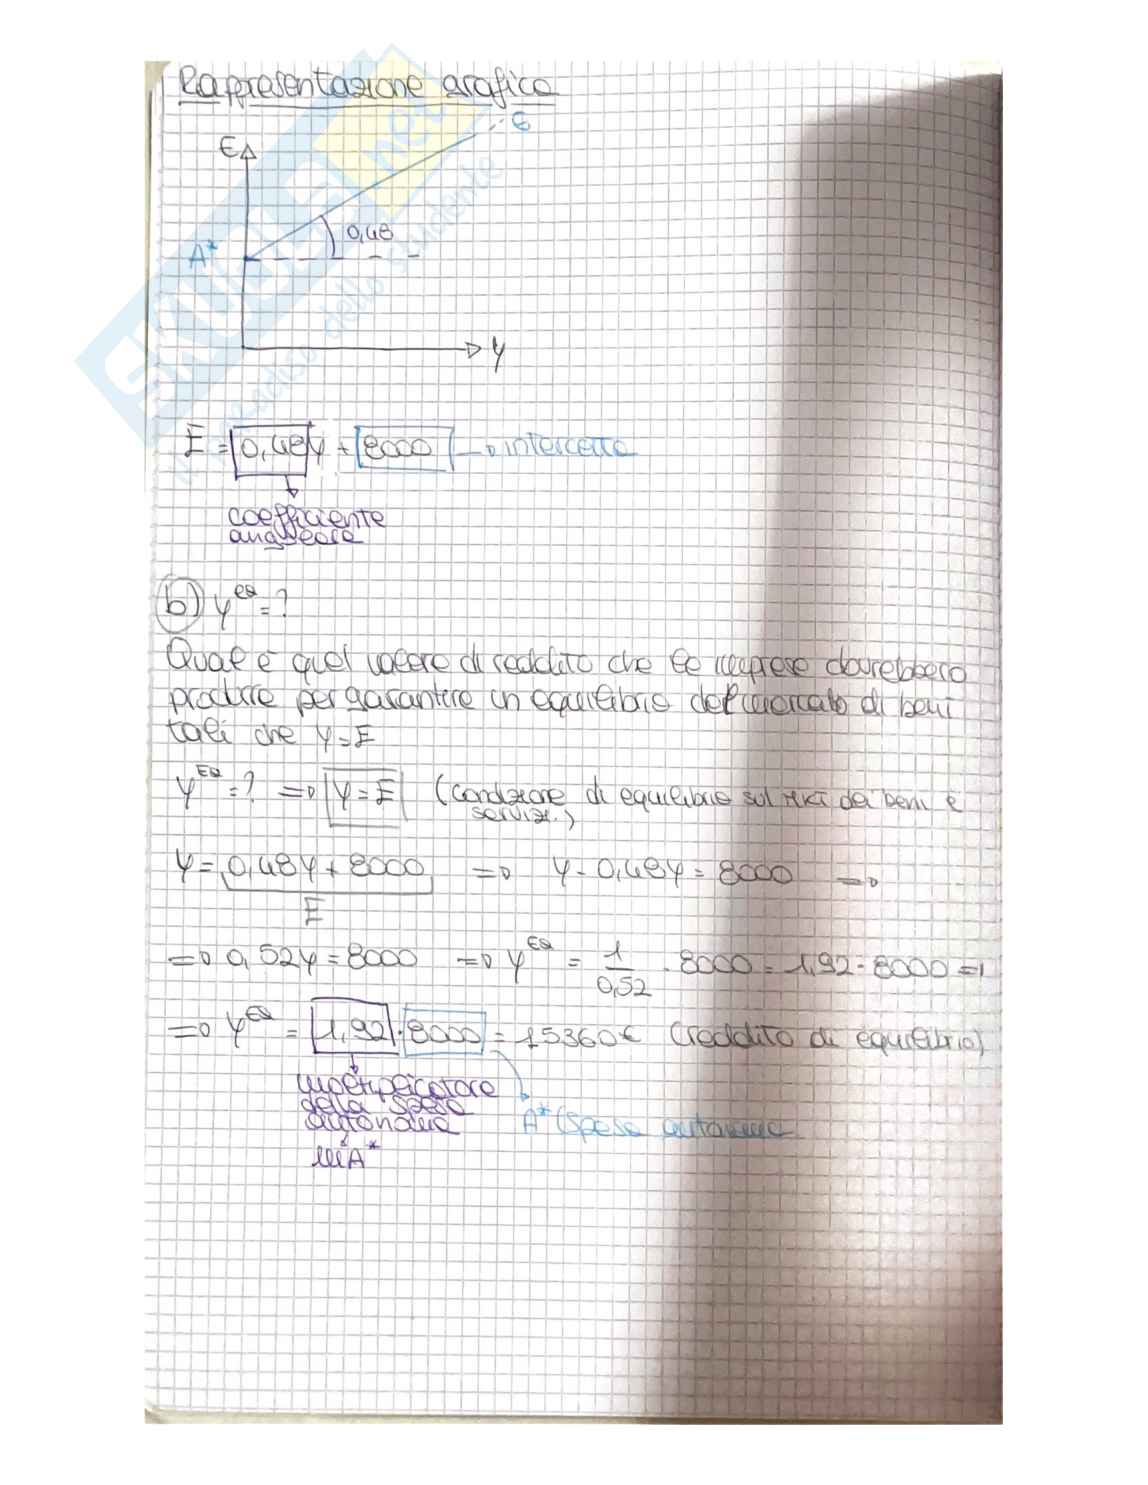 Rappresentazione grafica
E
E
0,48
A*
Y
E = 0,48Y + 8000 → intercetta
coefficiente
angolare
b) Y^EQ = ?
Qual è quel valore di reddito che le imprese dovrebbero
produrre per garantire un equilibrio del mercato di beni
tali che Y = E
Y^EQ = ? ⇒ Y = E (condizione di equilibrio sul dei beni e
servizi)
Y = 0,48Y + 8000 ⇒ Y - 0,48Y = 8000 ⇒
E
⇒ 0,52Y = 8000 ⇒ Y^EQ = 1/0,52 · 8000 = 1,92 · 8000 =
⇒ Y^EQ = 1,92 · 8000 = 15360€ (reddito di equilibrio)
moltiplicatore
della spesa
autonoma
A* (spesa autonoma
mA*
SKUOLA.net
dello studente